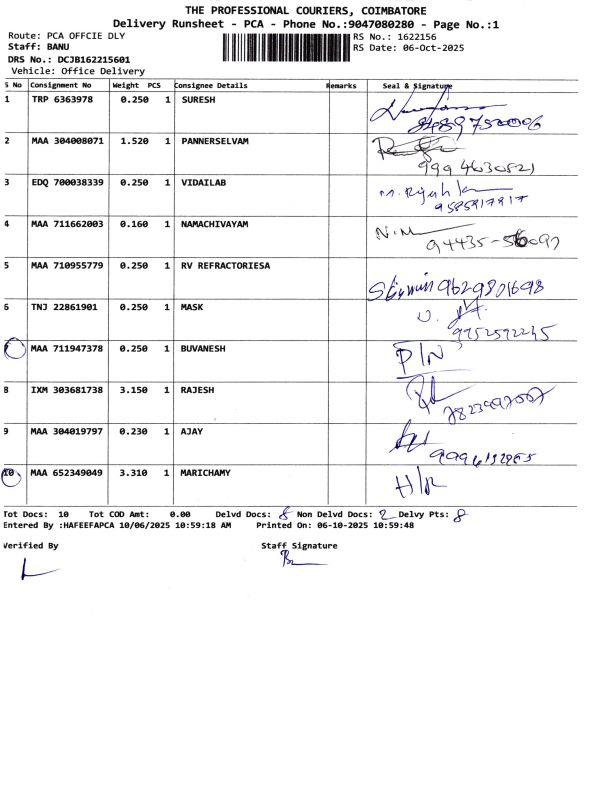 THE PROFESSIONAL COURIERS, COIMBATORE
Delivery Runsheet - PCA - Phone No.:9047080280 - Page No.:1
Route: PCA OFFCIE DLY
RS No.: 1622156
Staff: BANU
RS Date: 06-Oct-2025
DRS No.: DCJB162215601
Vehicle: Office Delivery
S No Consignment No Weight PCS Consignee Details Remarks Seal & Signature
1 TRP 6363978 0.250 1 SURESH
2 MAA 304008071 1.520 1 PANNERSELVAM
3 EDQ 700038339 0.250 1 VIDAILAB
4 MAA 711662003 0.160 1 NAMACHIVAYAM N.M
5 MAA 710955779 0.250 1 RV REFRACTORIESA 9629801698
6 TNJ 22861901 0.250 1 MASK
7 MAA 711947378 0.250 1 BUVANESH P/N
8 IXM 303681738 3.150 1 RAJESH
9 MAA 304019797 0.230 1 AJAY
10 MAA 652349049 3.310 1 MARICHAMY H/R
Tot Docs: 10 Tot COD Amt: 0.00 Delvd Docs: 8 Non Delvd Docs: 2 Delvy Pts: 8
Entered By :HAFEEFAPCA 10/06/2025 10:59:18 AM Printed On: 06-10-2025 10:59:48
Verified By Staff Signature